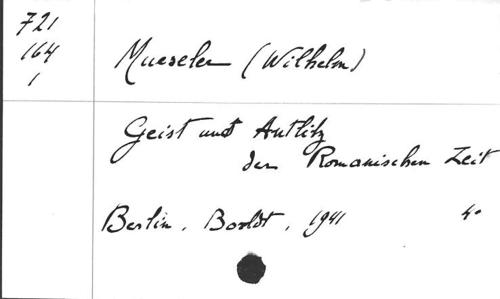 721
164
1
Mueseler (Wilhelm)
Geist und Antlitz
der Romanischen Zeit
Berlin. Bordt, 1941 4°